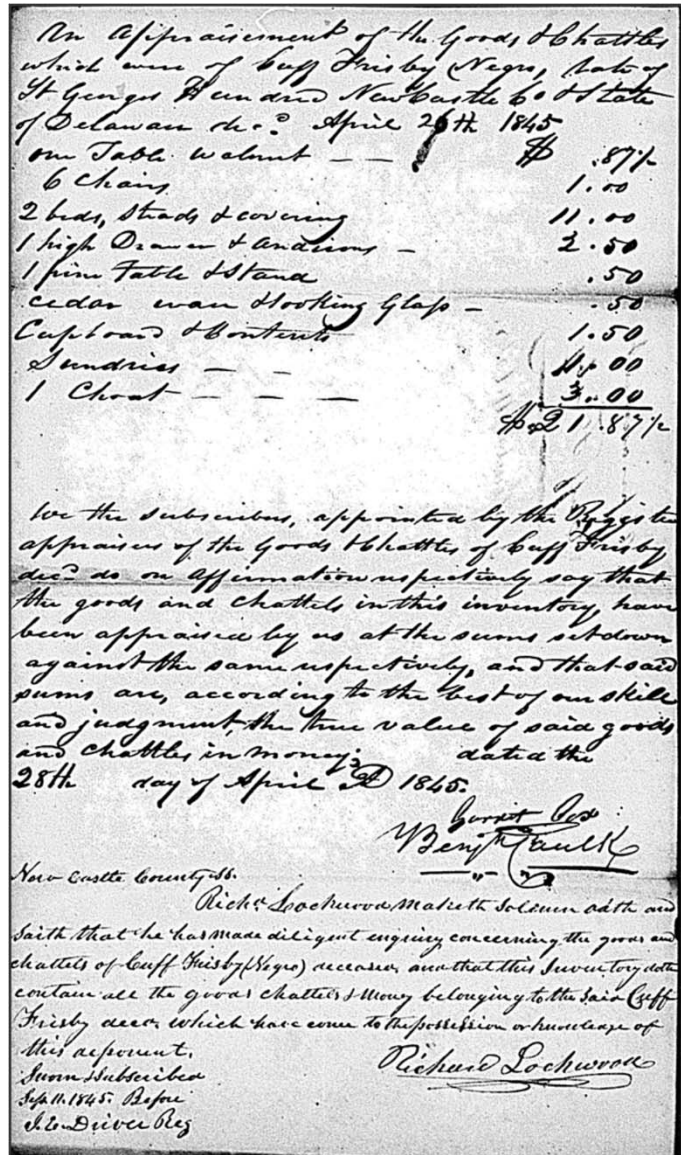 An Appraisement of the Goods & Chattles
which were of Cuff Frisby Negro, late of
St Georges Hundred NewCastle Co & State
of Delaware decd April 26th 1845
one Table walnut — — $ .87½
6 Chairs 1.00
2 beds, steads & covering 11.00
1 high Drawer & Andirons — 2.50
1 pine Table & Stand .50
cedar ware & looking Glass — .50
Cupboard & Contents 1.50
Sundries — — 1.00
1 Choat — — — 3.00
$21.87½
We the subscribers, appointed by the Register
appraisers of the Goods & Chattles of Cuff Frisby
decd do on affirmation respectively say that
the goods and chattels in this inventory, have
been appraised by us at the sums set down
against the same respectively, and that said
sums are, according to the best of our skill
and judgment, the true value of said goods
and chattles in money; dated the
28th day of April AD 1845.
Garret Cox
Benjn Caulk
New Castle County ss.
Richd Lockwood maketh Solemn oath and
saith that he has made diligent enquiry concerning the goods and
chattels of Cuff Frisby (Negro) deceased, and that this Inventory doth
contain all the goods chattels & money belonging to the said Cuff
Frisby decd, which have come to the possession or knowledge of
this deponent.
Richard Lockwood
Sworn & subscribed
Sept. 11. 1845. Before
Driver Reg